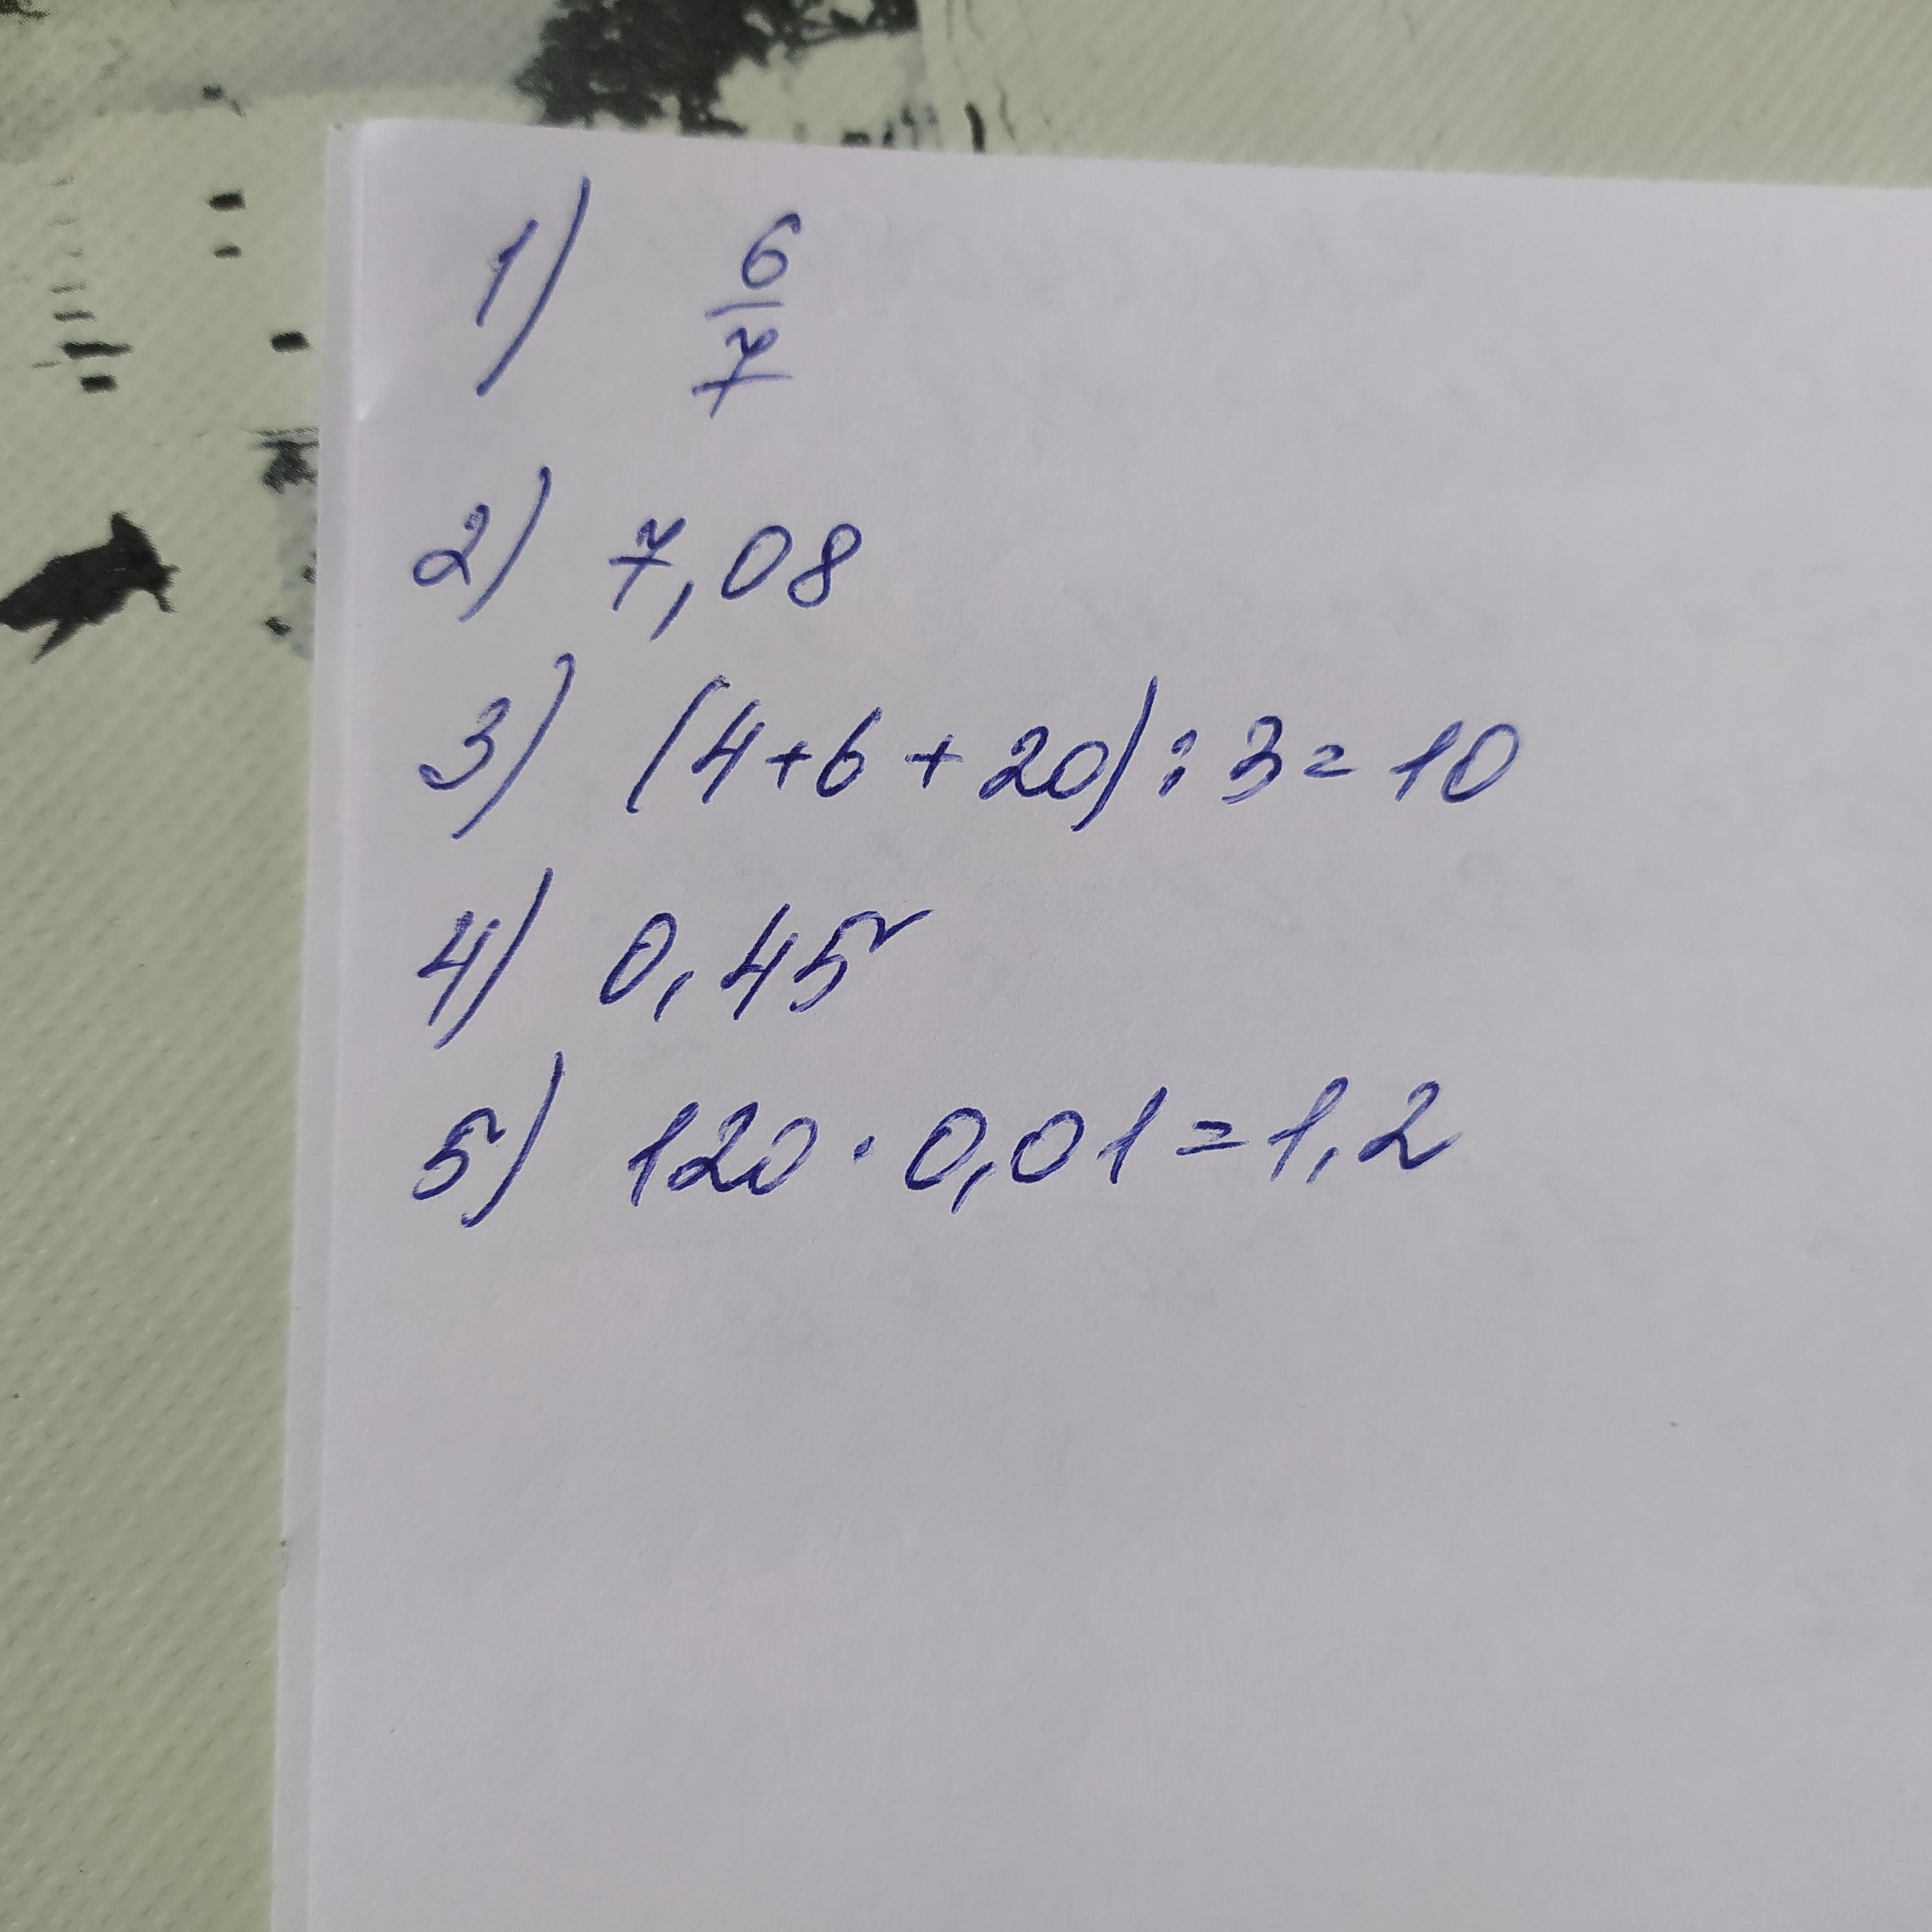 1) 6/7
2) 7,08
3) (4+6+20):3=10
4) 0,45
5) 120·0,01=1,2